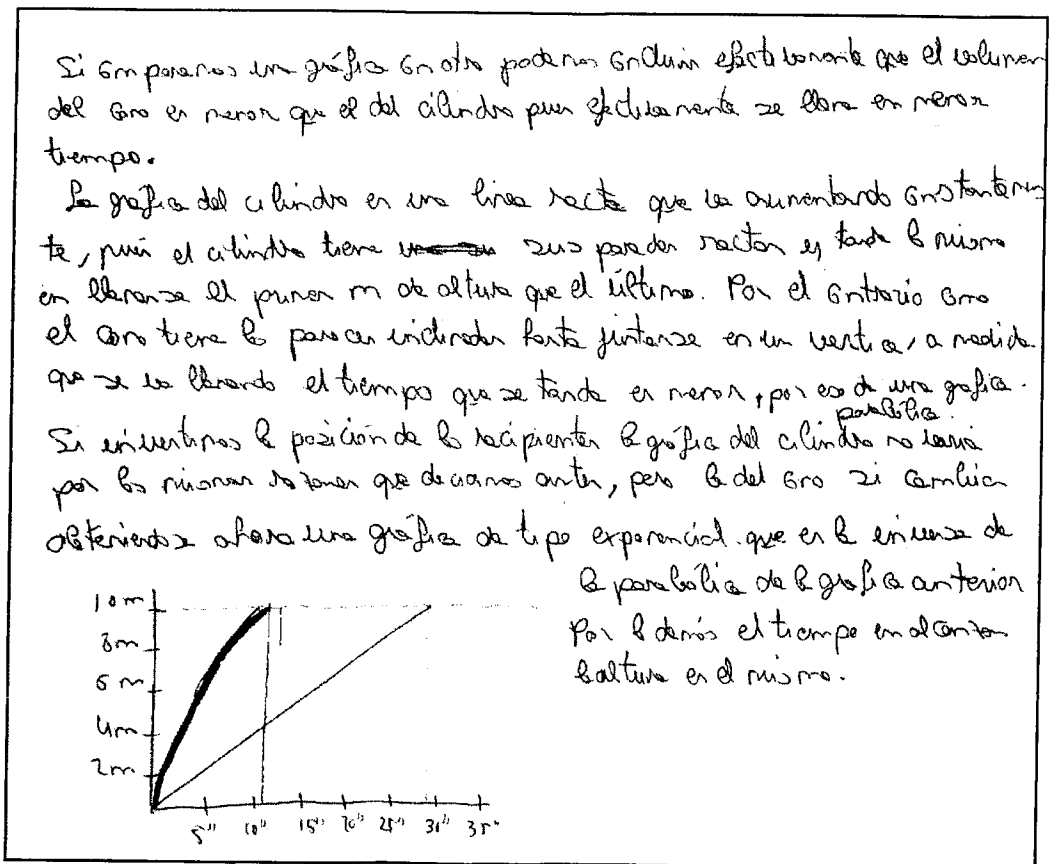 Si comparamos una gráfica con otra podemos concluir efectivamente que el volumen
del cono es menor que el del cilindro pues efectivamente se llena en menor
tiempo.
La gráfica del cilindro es una línea recta que va aumentando constantemen
te, pues el cilindro tiene sus paredes rectas y tarda lo mismo
en llenarse el primer m de altura que el último. Por el contrario como
el cono tiene las paredes inclinadas hasta juntarse en un vertice, a medida
que se va llenando el tiempo que se tarda es menor, por eso da una gráfica
parabólica.
Si invertimos la posición de los recipientes la gráfica del cilindro no varia
por las mismas razones que deciamos antes, pero la del cono si cambia
obteniendose ahora una gráfica de tipo exponencial que es la inversa de
la parabólica de la gráfica anterior
Por lo demás el tiempo en alcanzar
la altura es el mismo.
10 m
8 m
6 m
4 m
2 m
5" 10" 15" 20" 25" 30" 35"